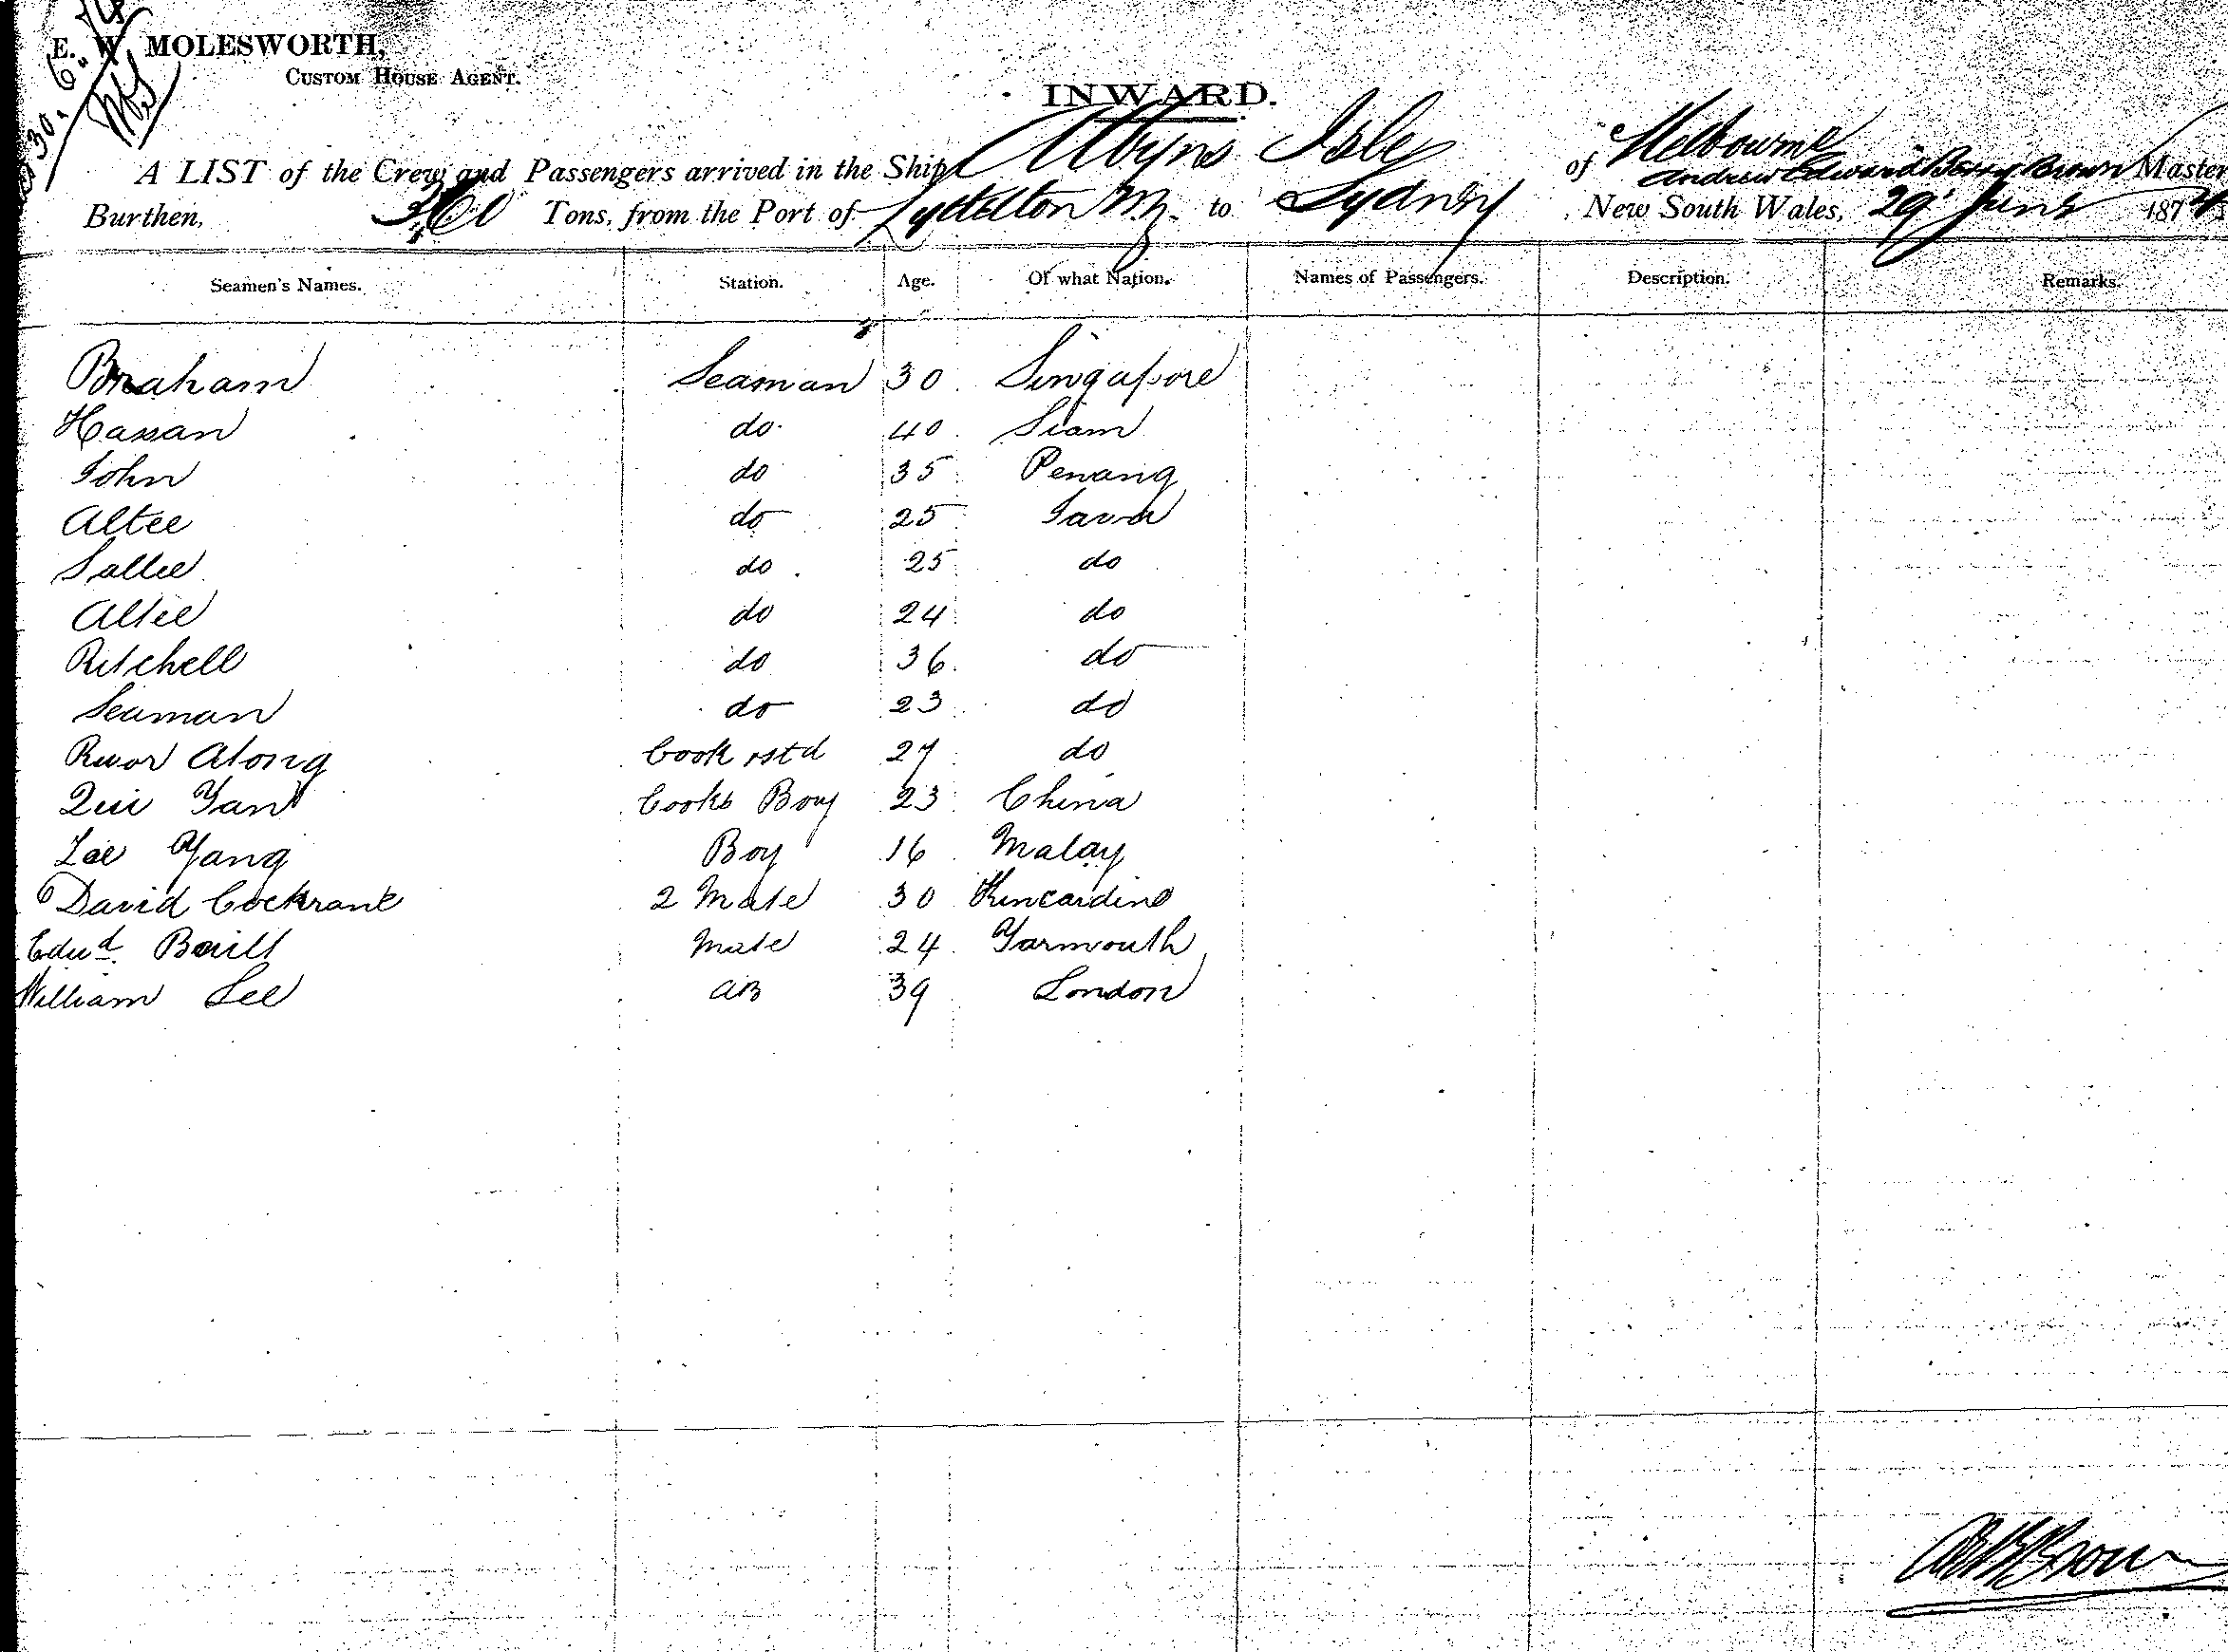 E. W. MOLESWORTH,
CUSTOM HOUSE AGENT.
INWARD.
A LIST of the Crew and Passengers arrived in the Ship Albyns Isle of Melbourne Andrew Edward Berry Brown Master
Burthen, 360 Tons, from the Port of Lyttelton N.Z. to Sydney New South Wales, 29 June 1874
Seamen's Names. Station. Age. Of what Nation. Names of Passengers. Description. Remarks.
Braham Seaman 30 Singapore
Hassan do 40 Siam
John do 35 Penang
Altee do 25 Java
Sallee do 25 do
Altee do 24 do
Ritchell do 36 do
Seaman do 23 do
Along Cook & std 27 do
Yan Cooks Boy 23 China
Yang Boy 16 Malay
David Cockrane 2 Mate 30 Kincardine
Edwd Mate 24 Yarmouth
William Lee AB 39 London
Brown